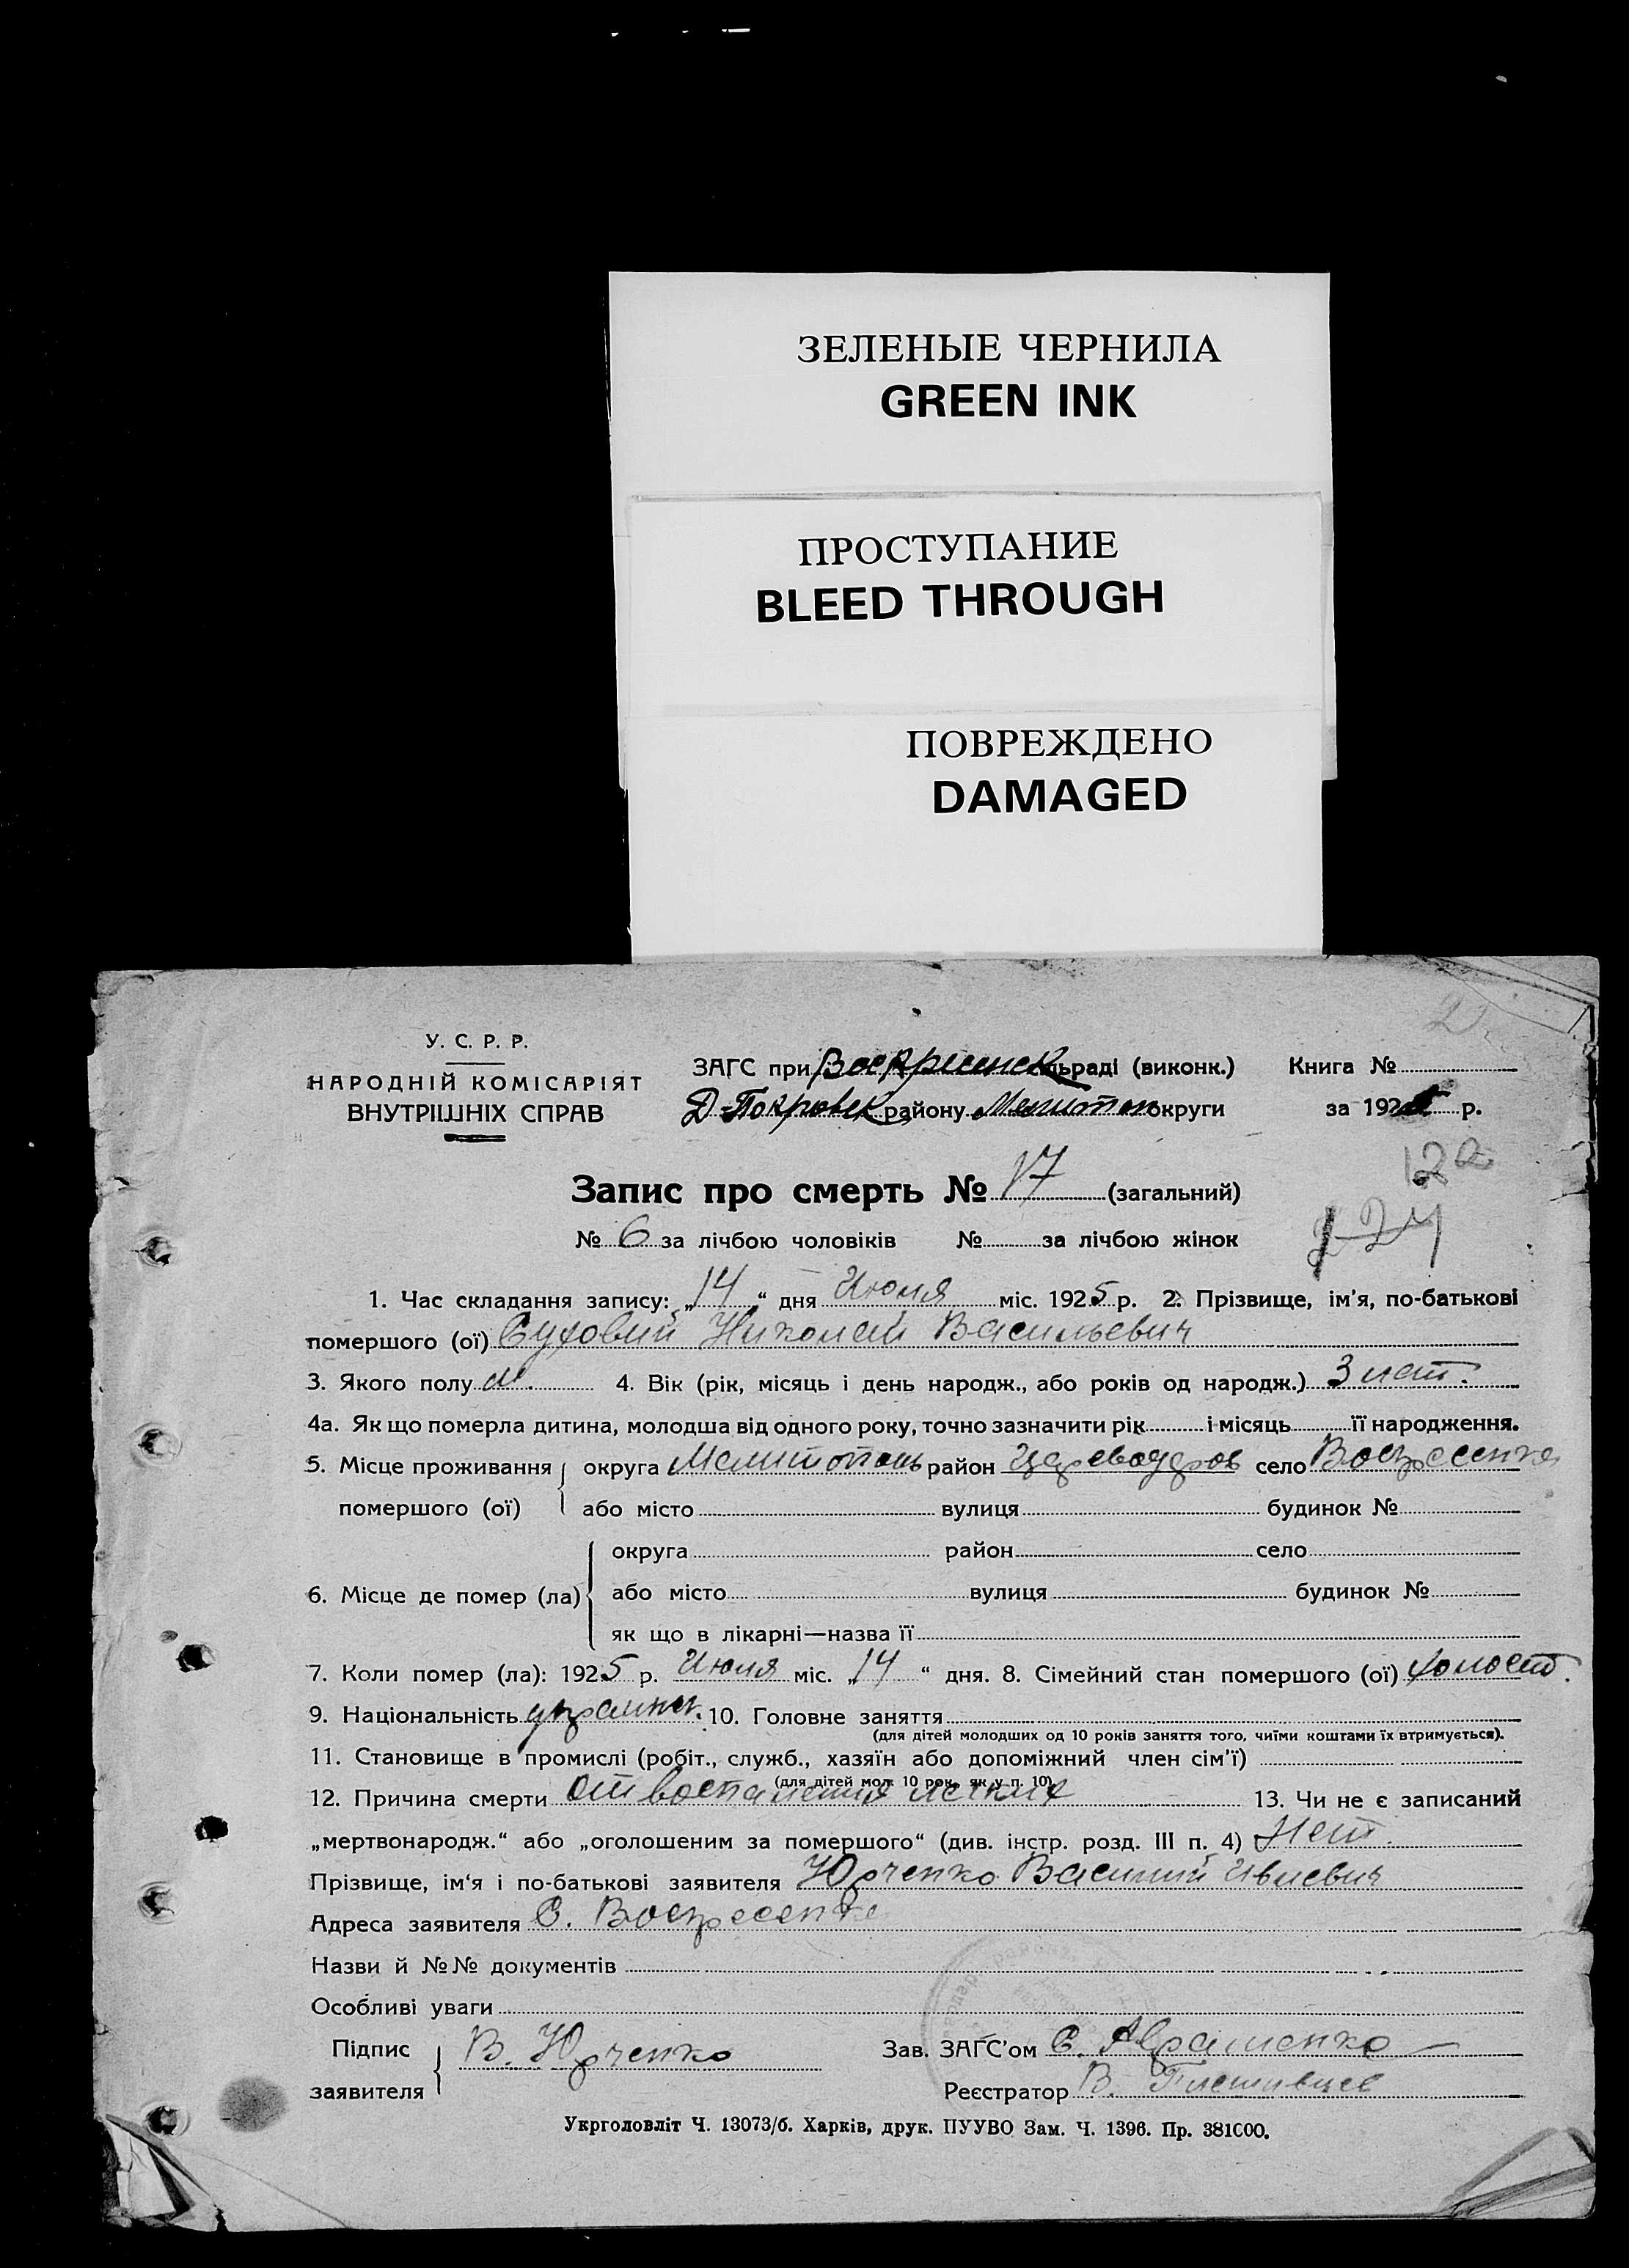 ЗЕЛЕНЫЕ ЧЕРНИЛА
GREEN INK
ПРОСТУПАНИЕ
BLEED THROUGH
ПОВРЕЖДЕНО
DAMAGED
У. С. Р. Р.
НАРОДНІЙ КОМІСАРІЯТ
ВНУТРІШНІХ СПРАВ
ЗАГС при льраді (виконк.) Книга №
Д-Покровск району Мелитоп округи за 192 р.
12а
Запис про смерть № 17 (загальний)
№ 6 за лічбою чоловіків № за лічбою жінок
1. Час складання запису: „14“ дня Июля міс. 1925 р. 2. Прізвище, ім'я, по-батькові
помершого (ої) Суховий Николай Васильевич
3. Якого полу м. 4. Вік (рік, місяць і день народж., або років од народж.) 3 лет.
4а. Як що померла дитина, молодша від одного року, точно зазначити рік і місяць її народження.
5. Місце проживання округа Мелитополь район село Воскресенка
помершого (ої) або місто вулиця будинок №
округа район село
6. Місце де помер (ла) або місто вулиця будинок №
як що в лікарні—назва її
7. Коли помер (ла): 1925 р. Июля міс. „14“ дня. 8. Сімейний стан помершого (ої) холост.
9. Національність украинец. 10. Головне заняття
(для дітей молодших од 10 років заняття того, чиїми коштами їх втримується).
11. Становище в промислі (робіт., служб., хазяїн або допоміжний член сім'ї)
(для дітей мол. 10 рок., як у п. 10)
12. Причина смерти от воспаления легких 13. Чи не є записаний
„мертвонародж.“ або „оголошеним за помершого“ (див. інстр. розд. III п. 4) Нет.
Прізвище, ім'я і по-батькові заявителя Юрченко Василий
Адреса заявителя С. Воскресенка
Назви й №№ документів
Особливі уваги
Підпис В. Юрченко Зав. ЗАГС'ом С. Авраменко
заявителя Реєстратор В.
Укрголовліт Ч. 13073/б. Харків, друк. ПУУВО Зам. Ч. 1396. Пр. 381000.